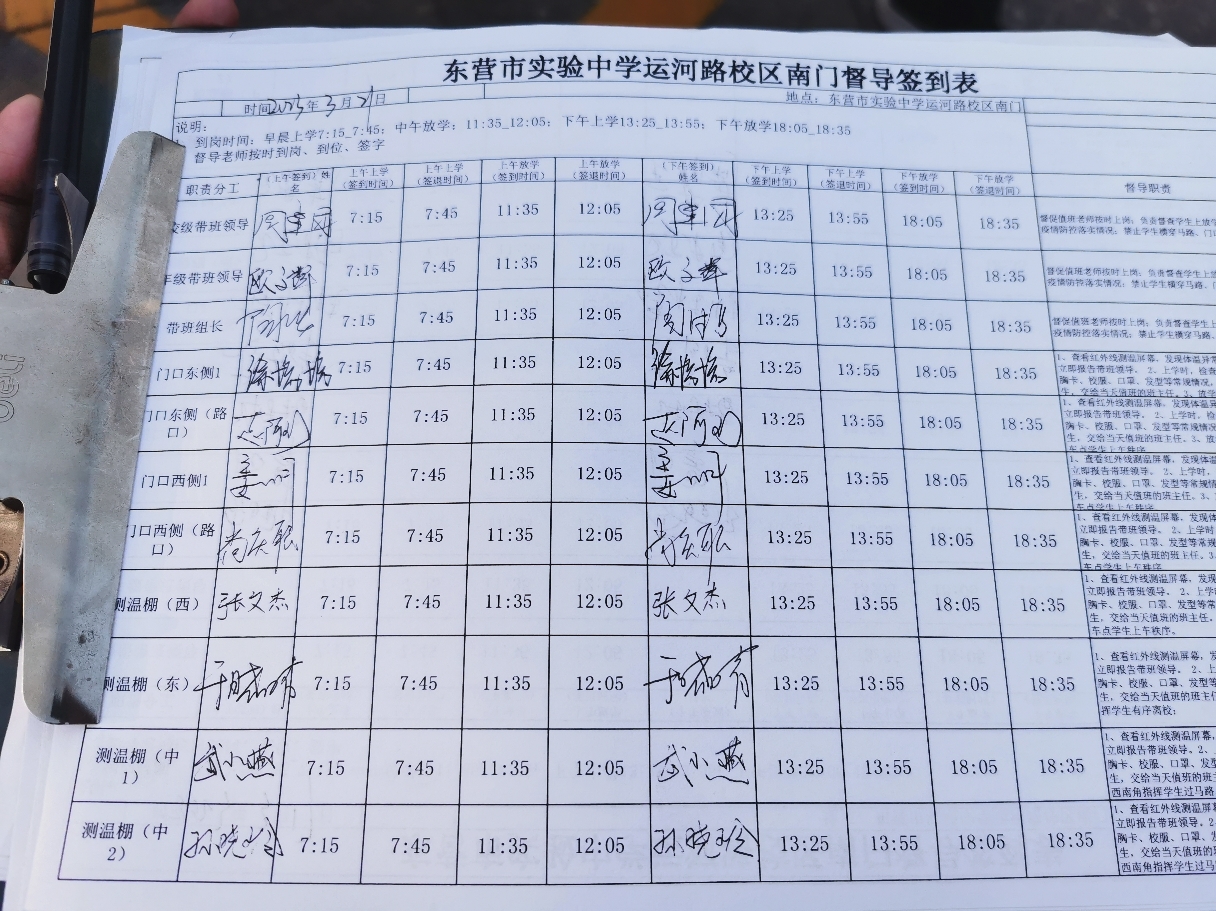 东营市实验中学运河路校区南门督导签到表
时间2023年3月21日 地点：东营市实验中学运河路校区南门
说明：
到岗时间：早晨上学7:15_7:45；中午放学：11:35_12:05；下午上学13:25_13:55；下午放学18:05_18:35
督导老师按时到岗、到位、签字
职责分工 （上午签到）姓名 上午上学（签到时间） 上午上学（签退时间） 上午放学（签到时间） 上午放学（签退时间） （下午签到）姓名 下午上学（签到时间） 下午上学（签退时间） 下午放学（签到时间） 下午放学（签退时间） 督导职责
校级带班领导 7:15 7:45 11:35 12:05 13:25 13:55 18:05 18:35 督促值班老师按时上岗；负责督查学生上放学
疫情防控落实情况；禁止学生横穿马路、门口
年级带班领导 欧子辉 7:15 7:45 11:35 12:05 欧子辉 13:25 13:55 18:05 18:35 督促值班老师按时上岗；负责督查学生上
疫情防控落实情况；禁止学生横穿马路、
带班组长 7:15 7:45 11:35 12:05 13:25 13:55 18:05 18:35 督促值班老师按时上岗；负责督查学生上
疫情防控落实情况；禁止学生横穿马路、
门口东侧1 徐培培 7:15 7:45 11:35 12:05 徐培培 13:25 13:55 18:05 18:35 1、查看红外线测温屏幕，发现体温异常
立即报告带班领导。 2、上学时，检查
胸卡、校服、口罩、发型等常规情况，
生，交给当天值班的班主任。3、放学
门口东侧（路口） 7:15 7:45 11:35 12:05 13:25 13:55 18:05 18:35 1、查看红外线测温屏幕，发现体温异
立即报告带班领导。 2、上学时，检
胸卡、校服、口罩、发型等常规情况
生，交给当天值班的班主任。3、放
车点学生上车秩序
门口西侧1 姜明 7:15 7:45 11:35 12:05 姜明 13:25 13:55 18:05 18:35 1、查看红外线测温屏幕，发现体温
立即报告带班领导。 2、上学时，
胸卡、校服、口罩、发型等常规情
生，交给当天值班的班主任。3、
车点学生上车秩序。
门口西侧（路口） 7:15 7:45 11:35 12:05 13:25 13:55 18:05 18:35 1、查看红外线测温屏幕，发现体
立即报告带班领导。 2、上学时
胸卡、校服、口罩、发型等常规
生，交给当天值班的班主任。3
车点学生上车秩序
测温棚（西） 张文杰 7:15 7:45 11:35 12:05 张文杰 13:25 13:55 18:05 18:35 1、查看红外线测温屏幕，发现
立即报告带班领导。 2、上学
胸卡、校服、口罩、发型等常
生，交给当天值班的班主任。
车点学生上车秩序。
测温棚（东） 7:15 7:45 11:35 12:05 13:25 13:55 18:05 18:35 1、查看红外线测温屏幕，发
立即报告带班领导。 2、上
胸卡、校服、口罩、发型等
生，交给当天值班的班主任
挥学生有序离校；
测温棚（中1） 武小燕 7:15 7:45 11:35 12:05 武小燕 13:25 13:55 18:05 18:35 1、查看红外线测温屏幕，
立即报告带班领导。2、
胸卡、校服、口罩、发型
生，交给当天值班的班主
西南角指挥学生过马路
测温棚（中2） 孙晓玲 7:15 7:45 11:35 12:05 孙晓玲 13:25 13:55 18:05 18:35 1、查看红外线测温屏幕
立即报告带班领导。2
胸卡、校服、口罩、发
生，交给当天值班的班
西南角指挥学生过马